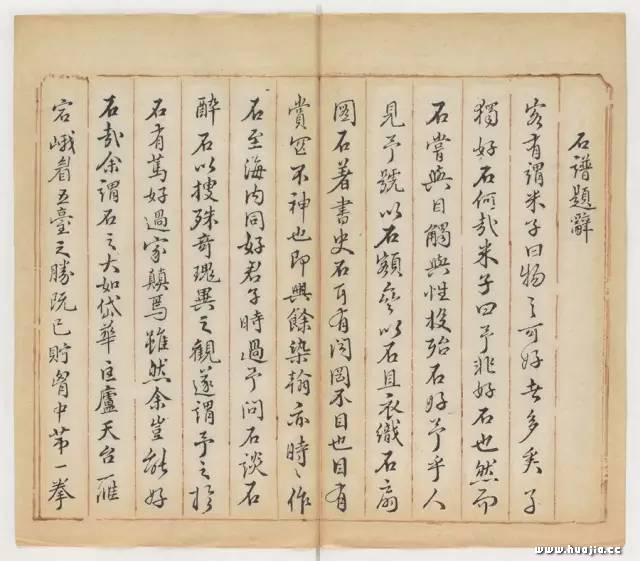 石譜題辭
客有謂米子曰物之可好者多矣子
獨好石何哉米子曰予非好石也然而
石嘗與目觸與性投殆石好予乎人
見予號以石額齋以石且衣織石扇
圖石著書史石可有閱罔不目也目有
賞罔不神也即興餘染翰亦時時作
石至海内同好君子時過予問石談石
酔石以搜殊奇瑰異之觀遂謂予之於
石有篤好過家顛焉雖然余豈能好
石哉余謂石之大如岱華匡廬天台雁
宕峨眉五臺之勝既已貯胷中第一拳
www.huajia.cc